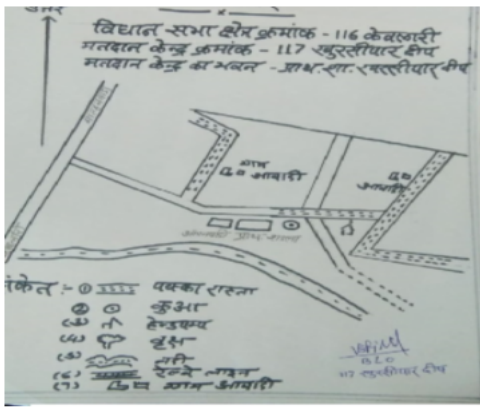 उत्तर
विधान सभा क्षेत्र क्रमांक - 116 केवलारी
मतदान केन्द्र क्रमांक - 117 खुरसीपार टोप
मतदान केन्द्र का भवन - प्राथ. शा. खुरसीपार टोप
ग्राम
आबादी
आबादी
आंगनबाड़ी प्राथ. शाला
संकेत :-
पक्का रास्ता
कुआ
(3) हेण्डपम्प
(4) वृक्ष
(5) नदी
(6) रेल्वे लाइन
(7) ग्राम आबादी
BLO
117 खुरसीपार टोप